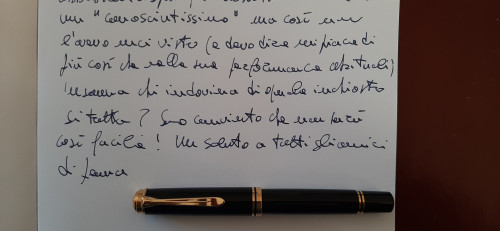 un "conosciutissimo" ma così non
l'avevo mai visto (e devo dire mi piace di
più così che nella sua performance abituali)
insomma chi indovina di quale inchiostro
si tratta? Sono convinto che non sarà
così facile! Un saluto a tutti gli amici
di penna